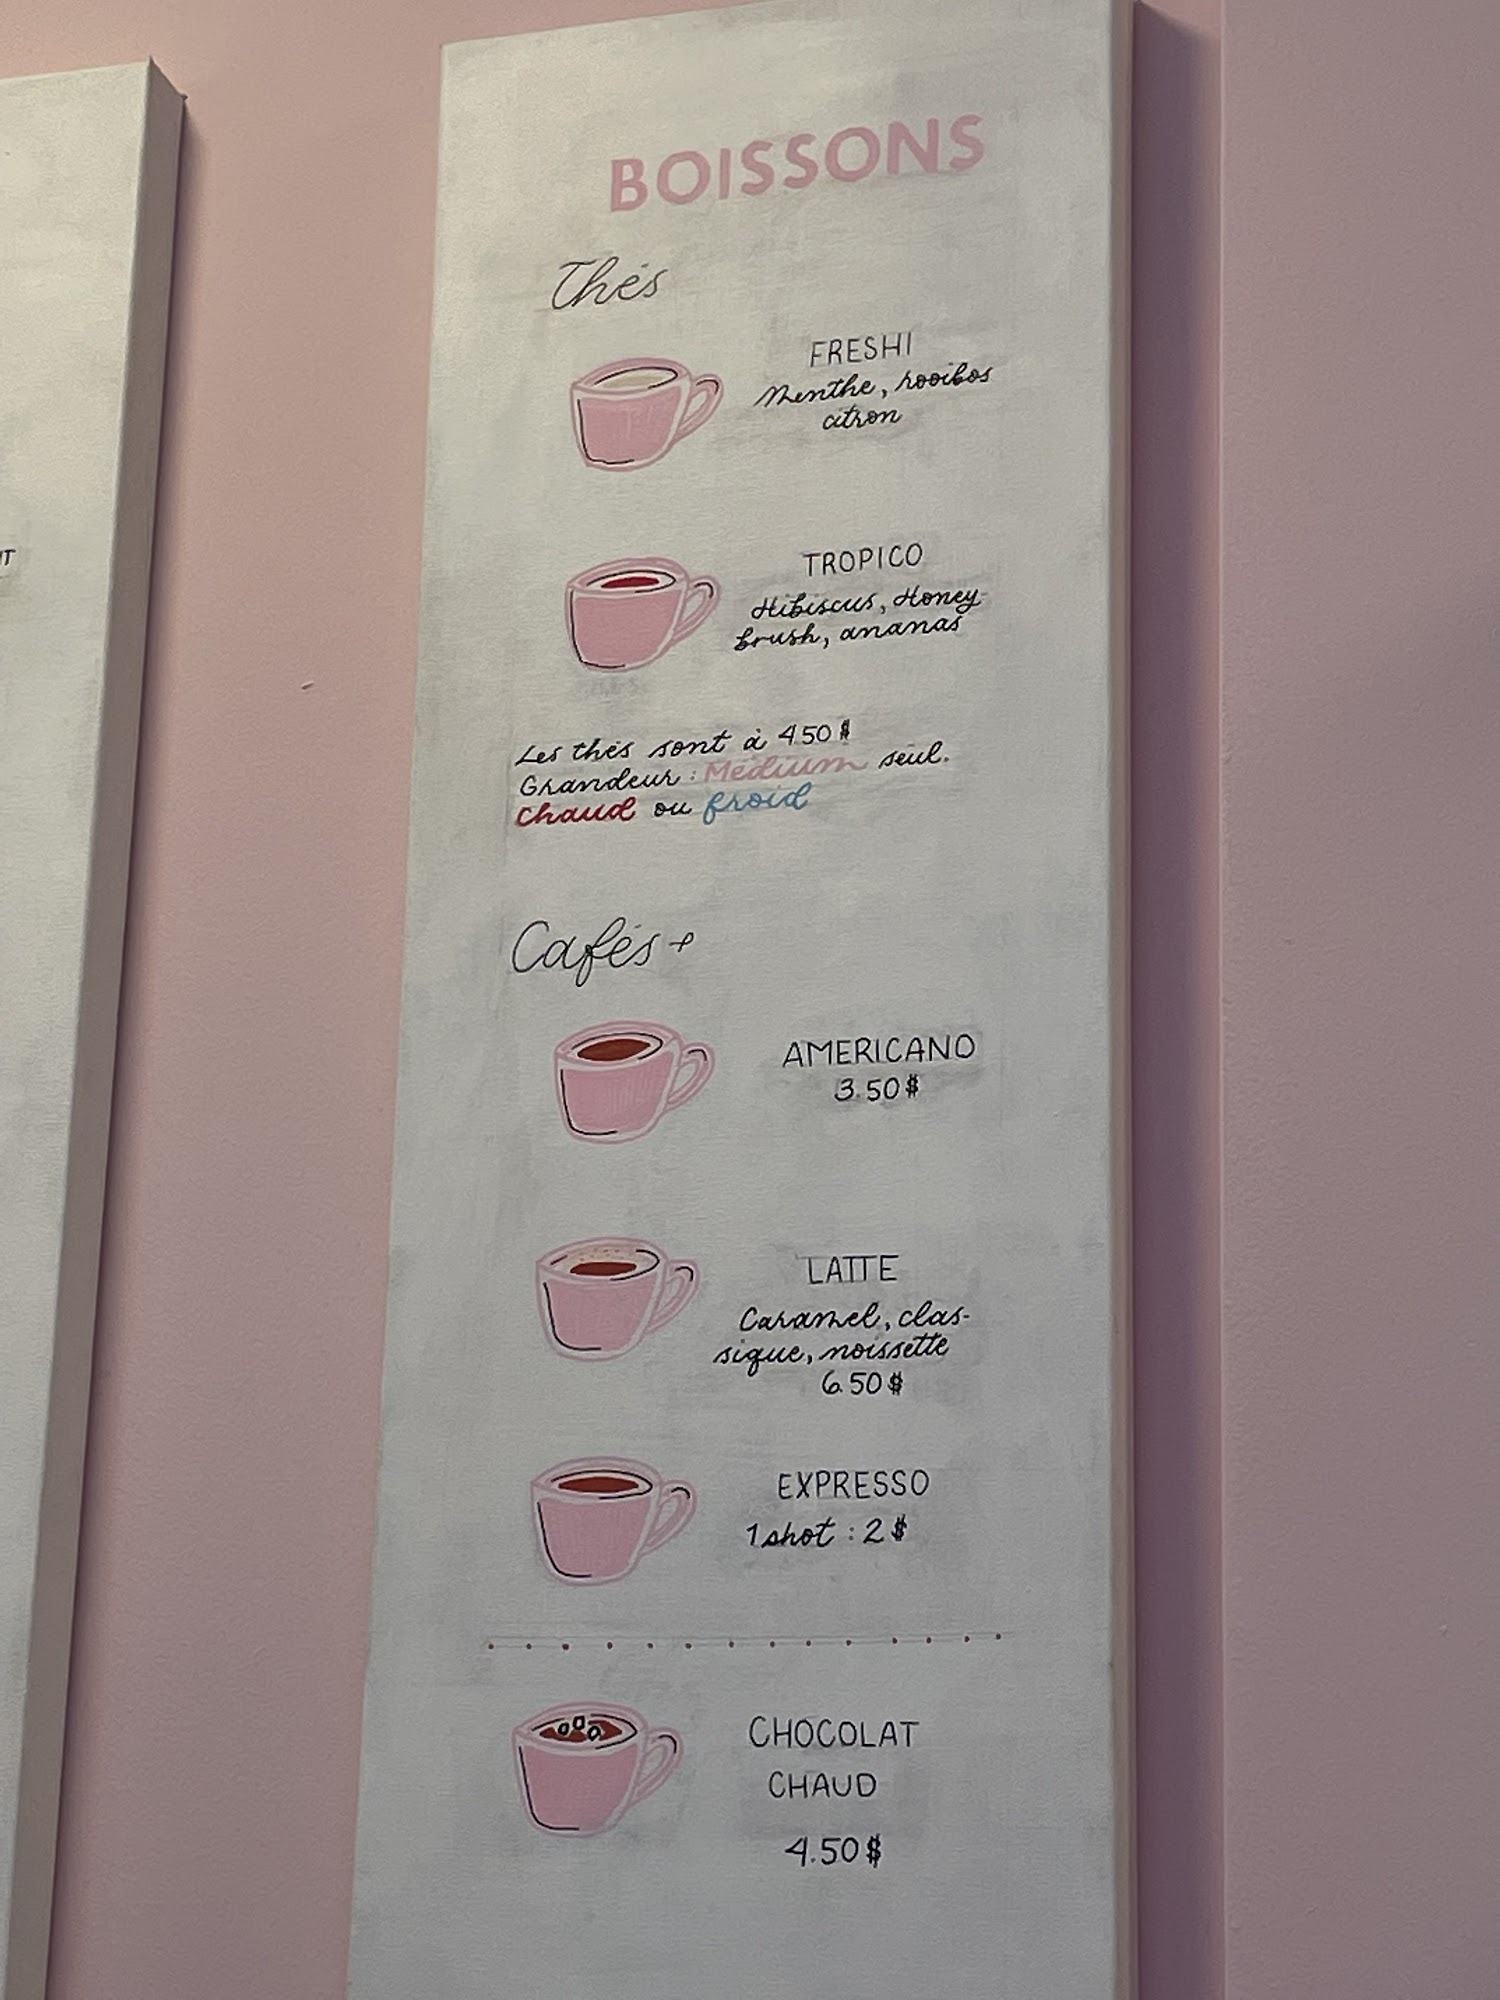 BOISSONS
Thés
FRESHI
Menthe, rooibos
citron
TROPICO
Hibiscus, Honey-
brush, ananas
Les thés sont à 4.50$
Grandeur : Médium seul.
Chaud ou froid
Cafés +
AMERICANO
3.50$
LATTE
Caramel, clas-
sique, noissette
6.50$
EXPRESSO
1 shot : 2$
CHOCOLAT
CHAUD
4.50$